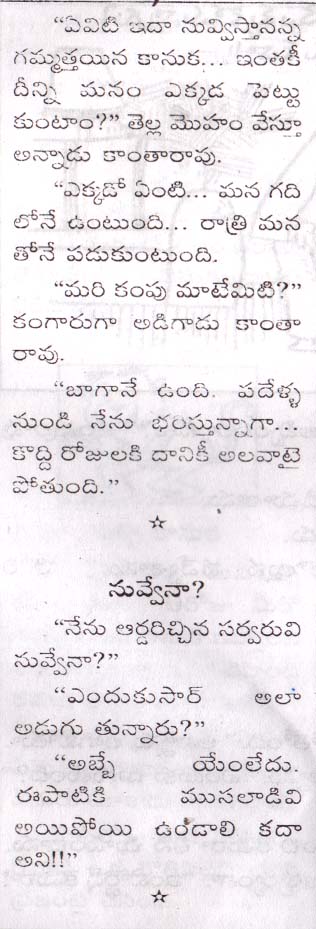 "ఏవిటి ఇదా నువ్విస్తానన్న
గమ్మత్తయిన కానుక... ఇంతకీ
దీన్ని మనం ఎక్కడ పెట్టు
కుంటాం?" తెల్ల మొహం వేస్తూ
అన్నాడు కాంతారావు.
"ఎక్కడో ఏంటి... మన గది
లోనే ఉంటుంది... రాత్రి మన
తోనే పడుకుంటుంది.
"మరి కంపు మాటేమిటి?"
కంగారుగా అడిగాడు కాంతా
రావు.
"బాగానే ఉంది. పదేళ్ళ
నుండి నేను భంస్తున్నాగా...
కొద్ది రోజులకి దానికీ అలవాటై
పోతుంది."
☆
నువ్వేనా?
"నేను ఆర్డరిచ్చిన సర్వరువి
నువ్వేనా?"
"ఎందుకుసార్ అలా
అడుగు తున్నారు?"
"అబ్బే యేంలేదు.
ఈపాటికి ముసలాడివి
అయిపోయి ఉండాలి కదా
అని!!"
☆